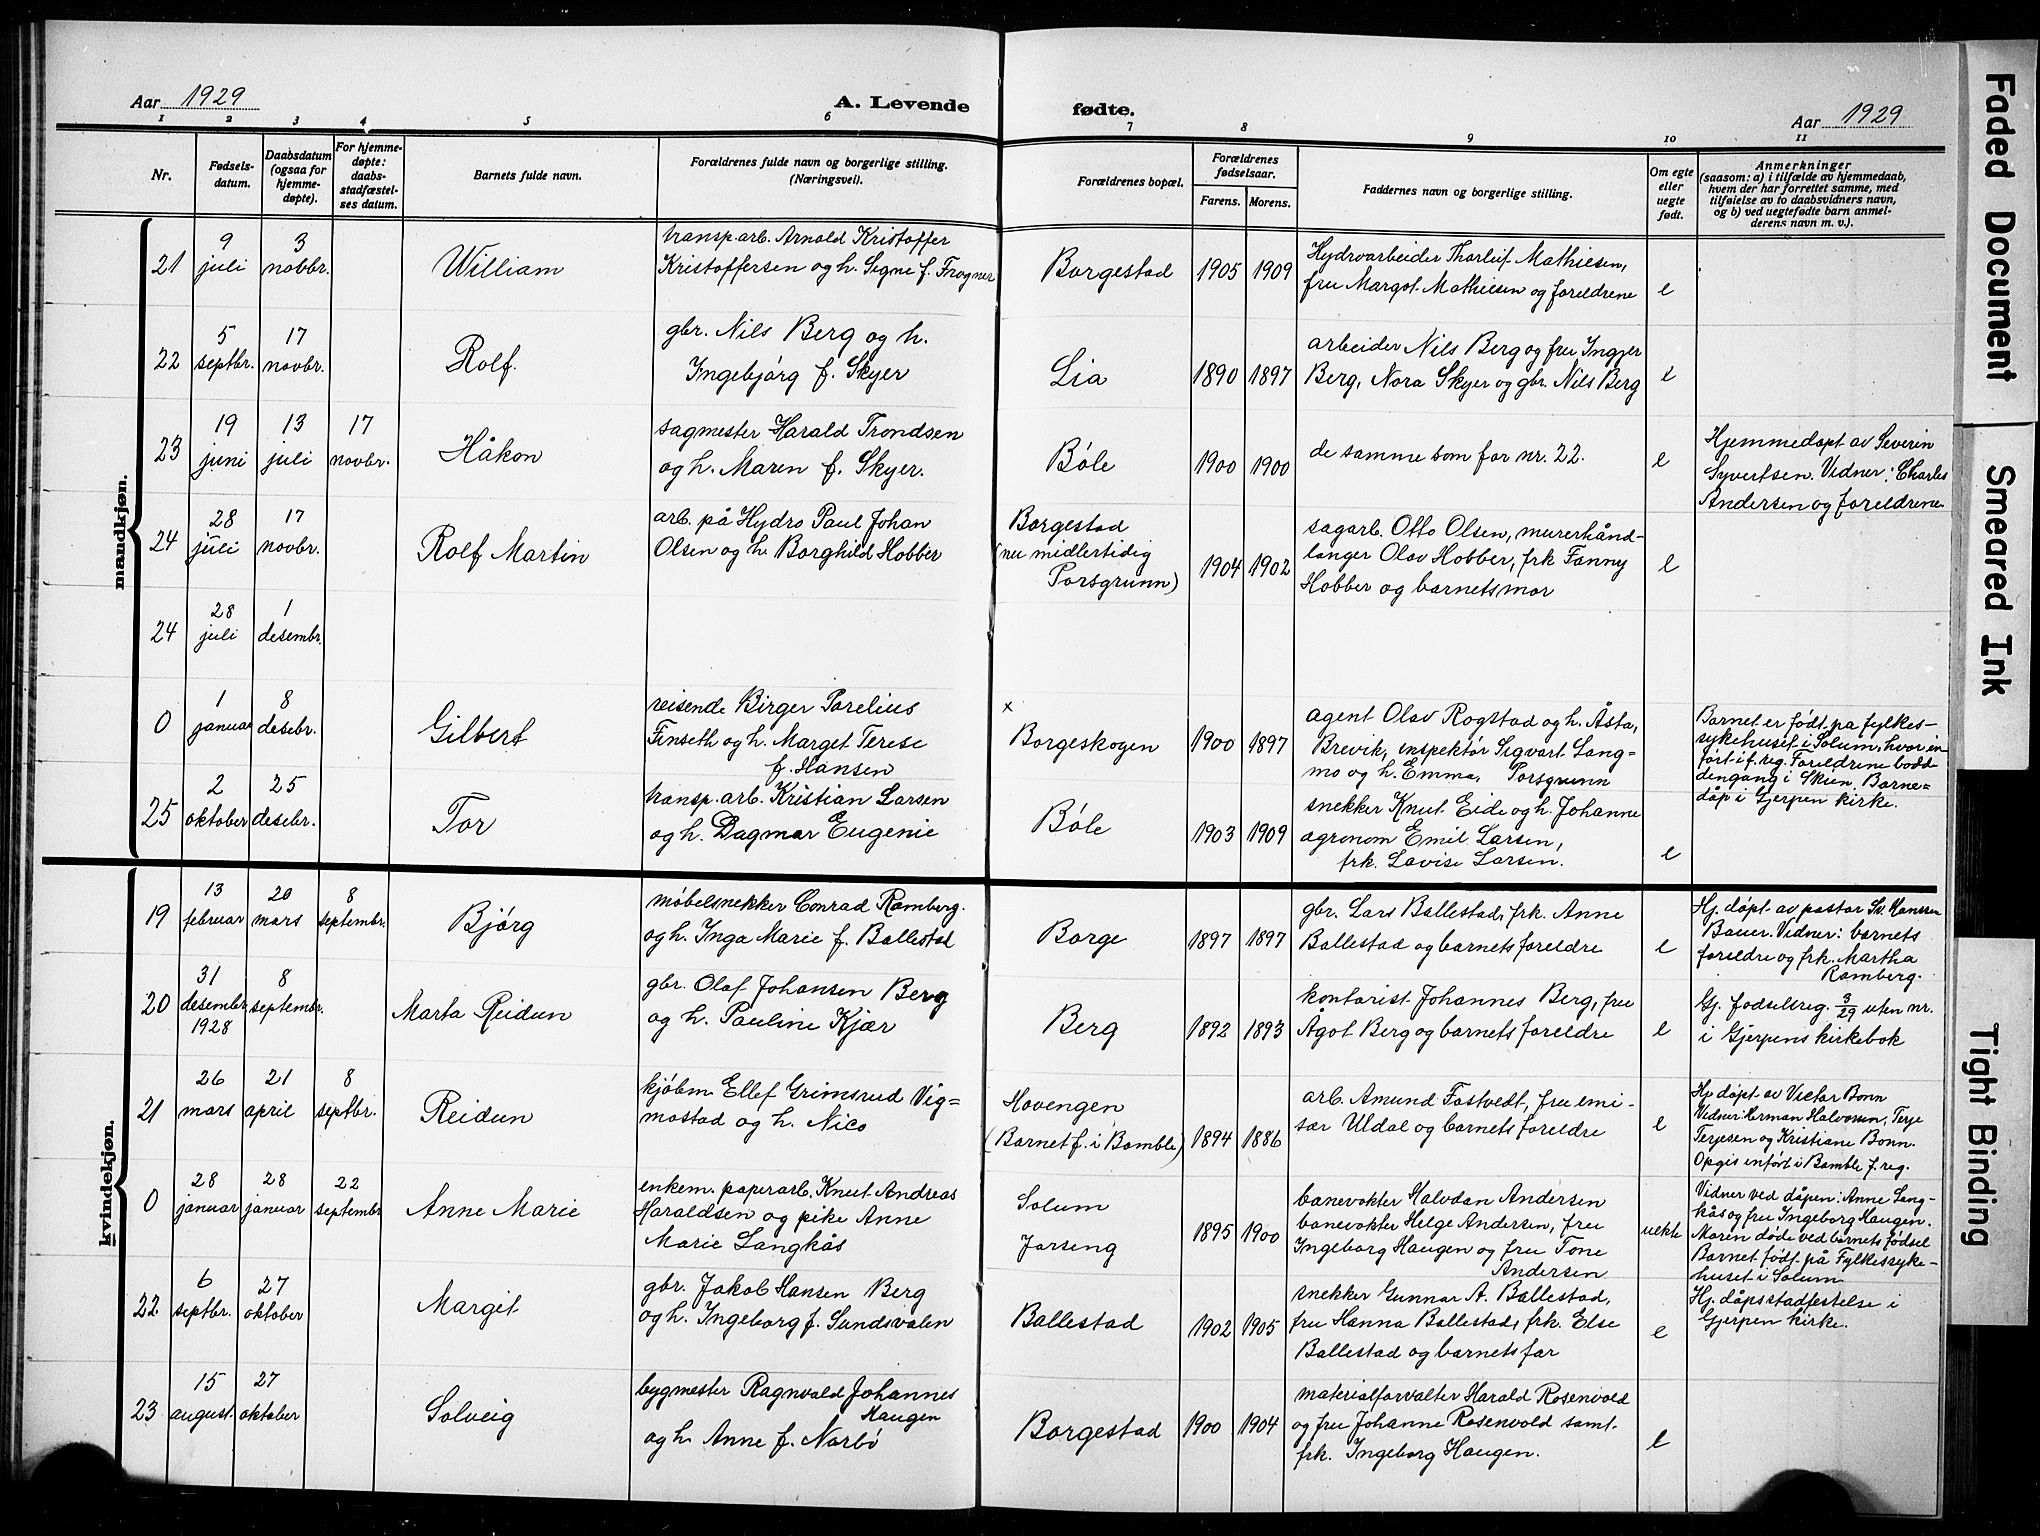 Aar 1929
A. Levende
fødte.
Aar 1929
1 2 3 4 5 6 7 8 9 10 11
Nr.
Fødsels-
datum.
Daabsdatum
(ogsaa for
hjemme-
døpte).
For hjemme-
døpte:
daabs-
stadfæstel-
ses datum.
Barnets fulde navn.
Forældrenes fulde navn og borgerlige stilling.
(Næringsvei).
Forældrenes bopæl.
Forældrenes
fødselsaar.
Farens. Morens.
Faddernes navn og borgerlige stilling.
Om egte
eller
uegte
født.
Anmerkninger
(saasom: a) i tilfælde av hjemmedaab,
hvem der har forrettet samme, med
tilføielse av to daabsvidners navn,
og b) ved uegtefødte barn anmel-
derens navn m. v.).
mandkjøn.
21
9
juli
3
novbr.
William
transp.arb. Arnold Kristoffer
Kristoffersen og h. Signe f. Frogner
Borgestad
1905 1909
Hydroarbeider Thorleif Mathiesen,
fru Margot Mathiesen og foreldrene
e
22
5
septbr.
17
novbr.
Rolf.
gbr. Nils Berg og h.
Ingebjørg f. Skyer
Lia
1890 1897
arbeider Nils Berg og fru Ingjer
Berg, Nora Skyer og gbr. Nils Berg
e
23
19
juni
13
juli
17
novbr.
Håkon
sagmester Harald Trondsen
og h. Maren f. Skyer.
Bøle
1900 1900
de samme som for nr. 22.
e
Hjemmedøpt av Severin
Syvertsen. Vidner: Charles
Andersen og foreldrene
24
28
juli
17
novbr.
Rolf Martin
arb. på Hydro Paul Johan
Olsen og h. Borghild Hobber
Borgestad
(nu midlertidig
Porsgrunn)
1904 1902
sagarb. Otto Olsen, murerhånd-
langer Olav Hobber, frk Fanny
Hobber og barnets mor
e
24
28
juli
1
desembr.
0
1
januar
8
desebr.
Gilbert
reisende Birger Parelius
Finseth og h. Marget Terese
f. Hansen
x
Borgeskogen
1900 1897
agent Olav Rogstad og h. Åsta,
Brevik, inspektør Sigvart Lang-
mo og h. Emma, Porsgrunn
Barnet er født på fylkes-
sykehuset i Solum, hvor in
ført i f. reg. Foreldrene bodde
dengang i Skien. Barne-
dåp i Gjerpen kirke.
25
2
oktober
25
desebr.
Tor
transp. arb. Kristian Larsen
og h. Dagmar Eugenie
Bøle
1903 1909
snekker Knut Eide og h. Johanne
agronom Emil Larsen,
frk. Lovise Larsen.
e
kvindekjøn.
19
13
februar
20
mars
8
septembr.
Bjørg
møbelsnekker Conrad Ramberg.
og h. Inga Marie f. Ballestad
Borge
1897 1897
gbr. Lars Ballestad, frk. Anne
Ballestad og barnets foreldre
e
Hj. døpt av pastor Sv. Hanssen
Bauer. Vidner: barnets
foreldre og frk. Martha
Ramberg.
20
31
desembr
1928
8
septembr.
Marta Reidun
gbr. Olaf Johansen Berg
og h. Pauline Kjær
Berg
1892 1893
kontorist Johannes Berg, fru
Ågot Berg og barnets foreldre
e
Gj. fødselsreg. 3/29 uten nr.
i Gjerpens kirkebok
21
26
mars
21
april
8
septbr.
Reidun
kjøbm. Ellef Grimsrud Vig-
mostad og h. Nico
Hovengen
(Barnet f. i Bamble)
1894 1886
arb. Amund Fostvedt, fru emi-
sær Uldal og barnets foreldre
e
Hj. døpt av Victor Bonn
Vidner: Herman Halvorsen, Terje
Terjesen og Kristiane Bonn.
Opgis enført i Bamble f. reg.
0
28
januar
28
januar
22
septembr
Anne Marie
enkem. papirarb. Knut Andreas
Haraldsen og pike Anne
Marie Langkås
Solum
Jarseng
1895 1900
banevokter Halvdan Andersen
banevokter Helge Andersen, fru
Ingeborg Haugen og fru Tone
Andersen
uekte
Vidner ved dåpen: Anne Lang-
kås og fru Ingeborg Haugen.
Moren døde ved barnets fødsel
Barnet født på Fylkessyke-
huset i Solum
Hj. dåpsstadfestelse i
Gjerpen kirke.
22
6
septbr.
27
oktober
Margit
gbr. Jakob Hansen Berg
og h. Ingeborg f. Sundsvalen
Ballestad
1902 1905
snekker Gunnar A. Ballestad,
fru Hanna Ballestad, frk. Else
Ballestad og barnets far
e
23
15
august.
27
oktober
Solveig
bygmester Ragnvald Johannes
Haugen
og h. Anne f. Narbø
Borgestad
1900 1904
materialforvalter Harald Rosenvold
og fru Johanne Rosenvold samt
frk. Ingeborg Haugen.
e
Faded Document
Smeared Ink
Tight Binding